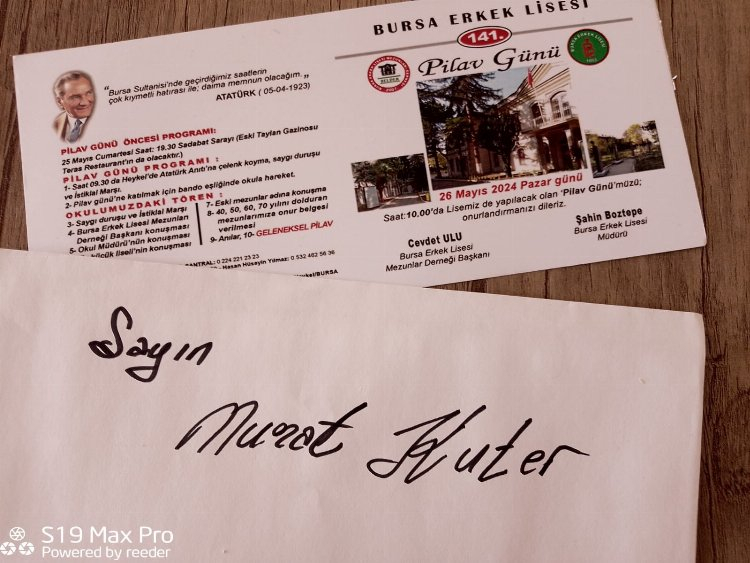 BURSA ERKEK LİSESİ
141.
Pilav Günü
"Bursa Sultanisi'nde geçirdiğimiz saatlerin
çok kıymetli hatırası ile, daima memnun olacağım."
ATATÜRK ( 05-04-1923)
PİLAV GÜNÜ ÖNCESİ PROGRAMI:
25 Mayıs Cumartesi Saat: 19.30 Sadabat Sarayı (Eski Taylan Gazinosu
Teras Restaurant'ın da olacaktır.)
PİLAV GÜNÜ PROGRAMI :
1- Saat 09.30 da Heykel'de Atatürk Anıtı'na çelenk koyma, saygı duruşu
ve İstiklal Marşı.
2- Pilav günü'ne katılmak için bando eşliğinde okula hareket.
OKULUMUZDAKİ TÖREN :
3- Saygı duruşu ve İstiklal Marşı
4- Bursa Erkek Lisesi Mezunları
Derneği Başkanı konuşması
5- Okul Müdürü'nün konuşması
küçük liseli'nin konuşması
7- Eski mezunlar adına konuşma
8- 40, 50, 60, 70 yılını dolduran
mezunlarımıza onur belgesi
verilmesi
9- Anılar, 10- GELENEKSEL PİLAV
SANTRAL: 0 224 221 23 23
Hasan Hüseyin Yılmaz: 0 532 482 56 36
Heykel/BURSA
26 Mayıs 2024 Pazar günü
Saat:10.00'da Lisemiz de yapılacak olan 'Pilav Günü'müzü;
onurlandırmanızı dileriz.
Cevdet ULU
Bursa Erkek Lisesi
Mezunlar Derneği Başkanı
Şahin Boztepe
Bursa Erkek Lisesi
Müdürü
Sayın
Murat Kuter
S19 Max Pro
Powered by reeder